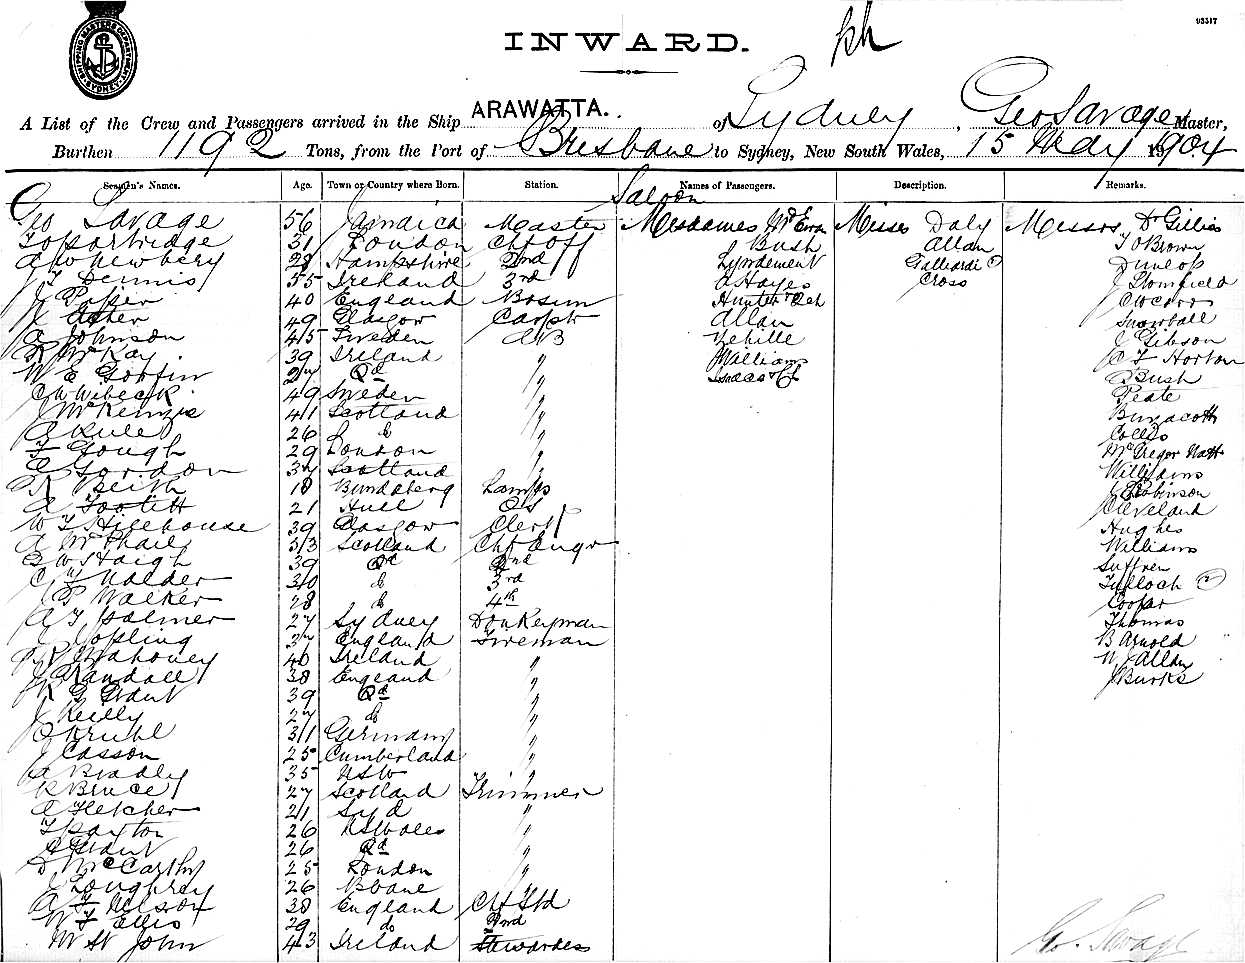 SHIPPING MASTERS DEPARTMENT SYDNEY
93517
INWARD.
A List of the Crew and Passengers arrived in the Ship ARAWATTA. of Sydney, Geo Savage Master,
Burthen 1192 Tons, from the Port of Brisbane to Sydney, New South Wales, 15 May 1904
Seamen's Names. Age. Town or Country where Born. Station. Names of Passengers. Description. Remarks.
Saloon
Geo Savage 56 Jamaica Master Mesdames McEwan Misses Daly Messrs Dr Gillies
Partridge 31 London Chf Off Bush Allan T O Brown
Newbery 29 Hampshire 2nd Lyndement Galliardi (?) Dunlop
J T Dennis 55 Ireland 3rd A Hayes Cross J Blomfield
J Potter 40 England Bosun Hunter & Ch
49 Glasgow Carptr Allan Snowball
A Johnson 45 Sweden AB J Gibson
R McKay 39 Ireland " Williams C F Horton
W E Goffin 24 Do " Isaacs & Ch Bush
C W Wibeck 49 Sweden " Peate
J McKenzie 41 Scotland " Buzacott
A Rule 26 do " Collis
T Gough 29 London " McGregor
Gordon 37 Scotland " Williams
R Beith 18 Bundaberg Lamps Robinson
A Footitt 21 Hull OS Cleveland
W T Hillhouse 39 Glasgow Clerk Hughes
A McPhail 33 Scotland Chf Engr Williams
G W Haigh 39 Do 2nd Suffren
C T Nalder 30 do 3rd Tulloch (?)
P Walker 28 do 4th Cooper
A T Palmer 27 Sydney Donkeyman Thomas
J Copling 37 England Fireman B Arnold
Mahoney 40 Ireland " W J Allan
J Randall 38 England " J Burks
R G Grant 39 Do "
J Reilly 27 do "
Kruhl 31 Germany "
J Casson 25 Cumberland "
A Bradley 35 NSW "
R Bruce 27 Scotland Trimmer
C Fletcher 21 Syd "
T Paxton 26 NSWales "
C Grant 26 Do "
D McCarthy 25 London "
J Loughrey 26 Bbane "
A F Nelson 38 England Chf Std
W F Ellis 29 do 2nd
M St John 43 Ireland Stewardes
Geo. Savage